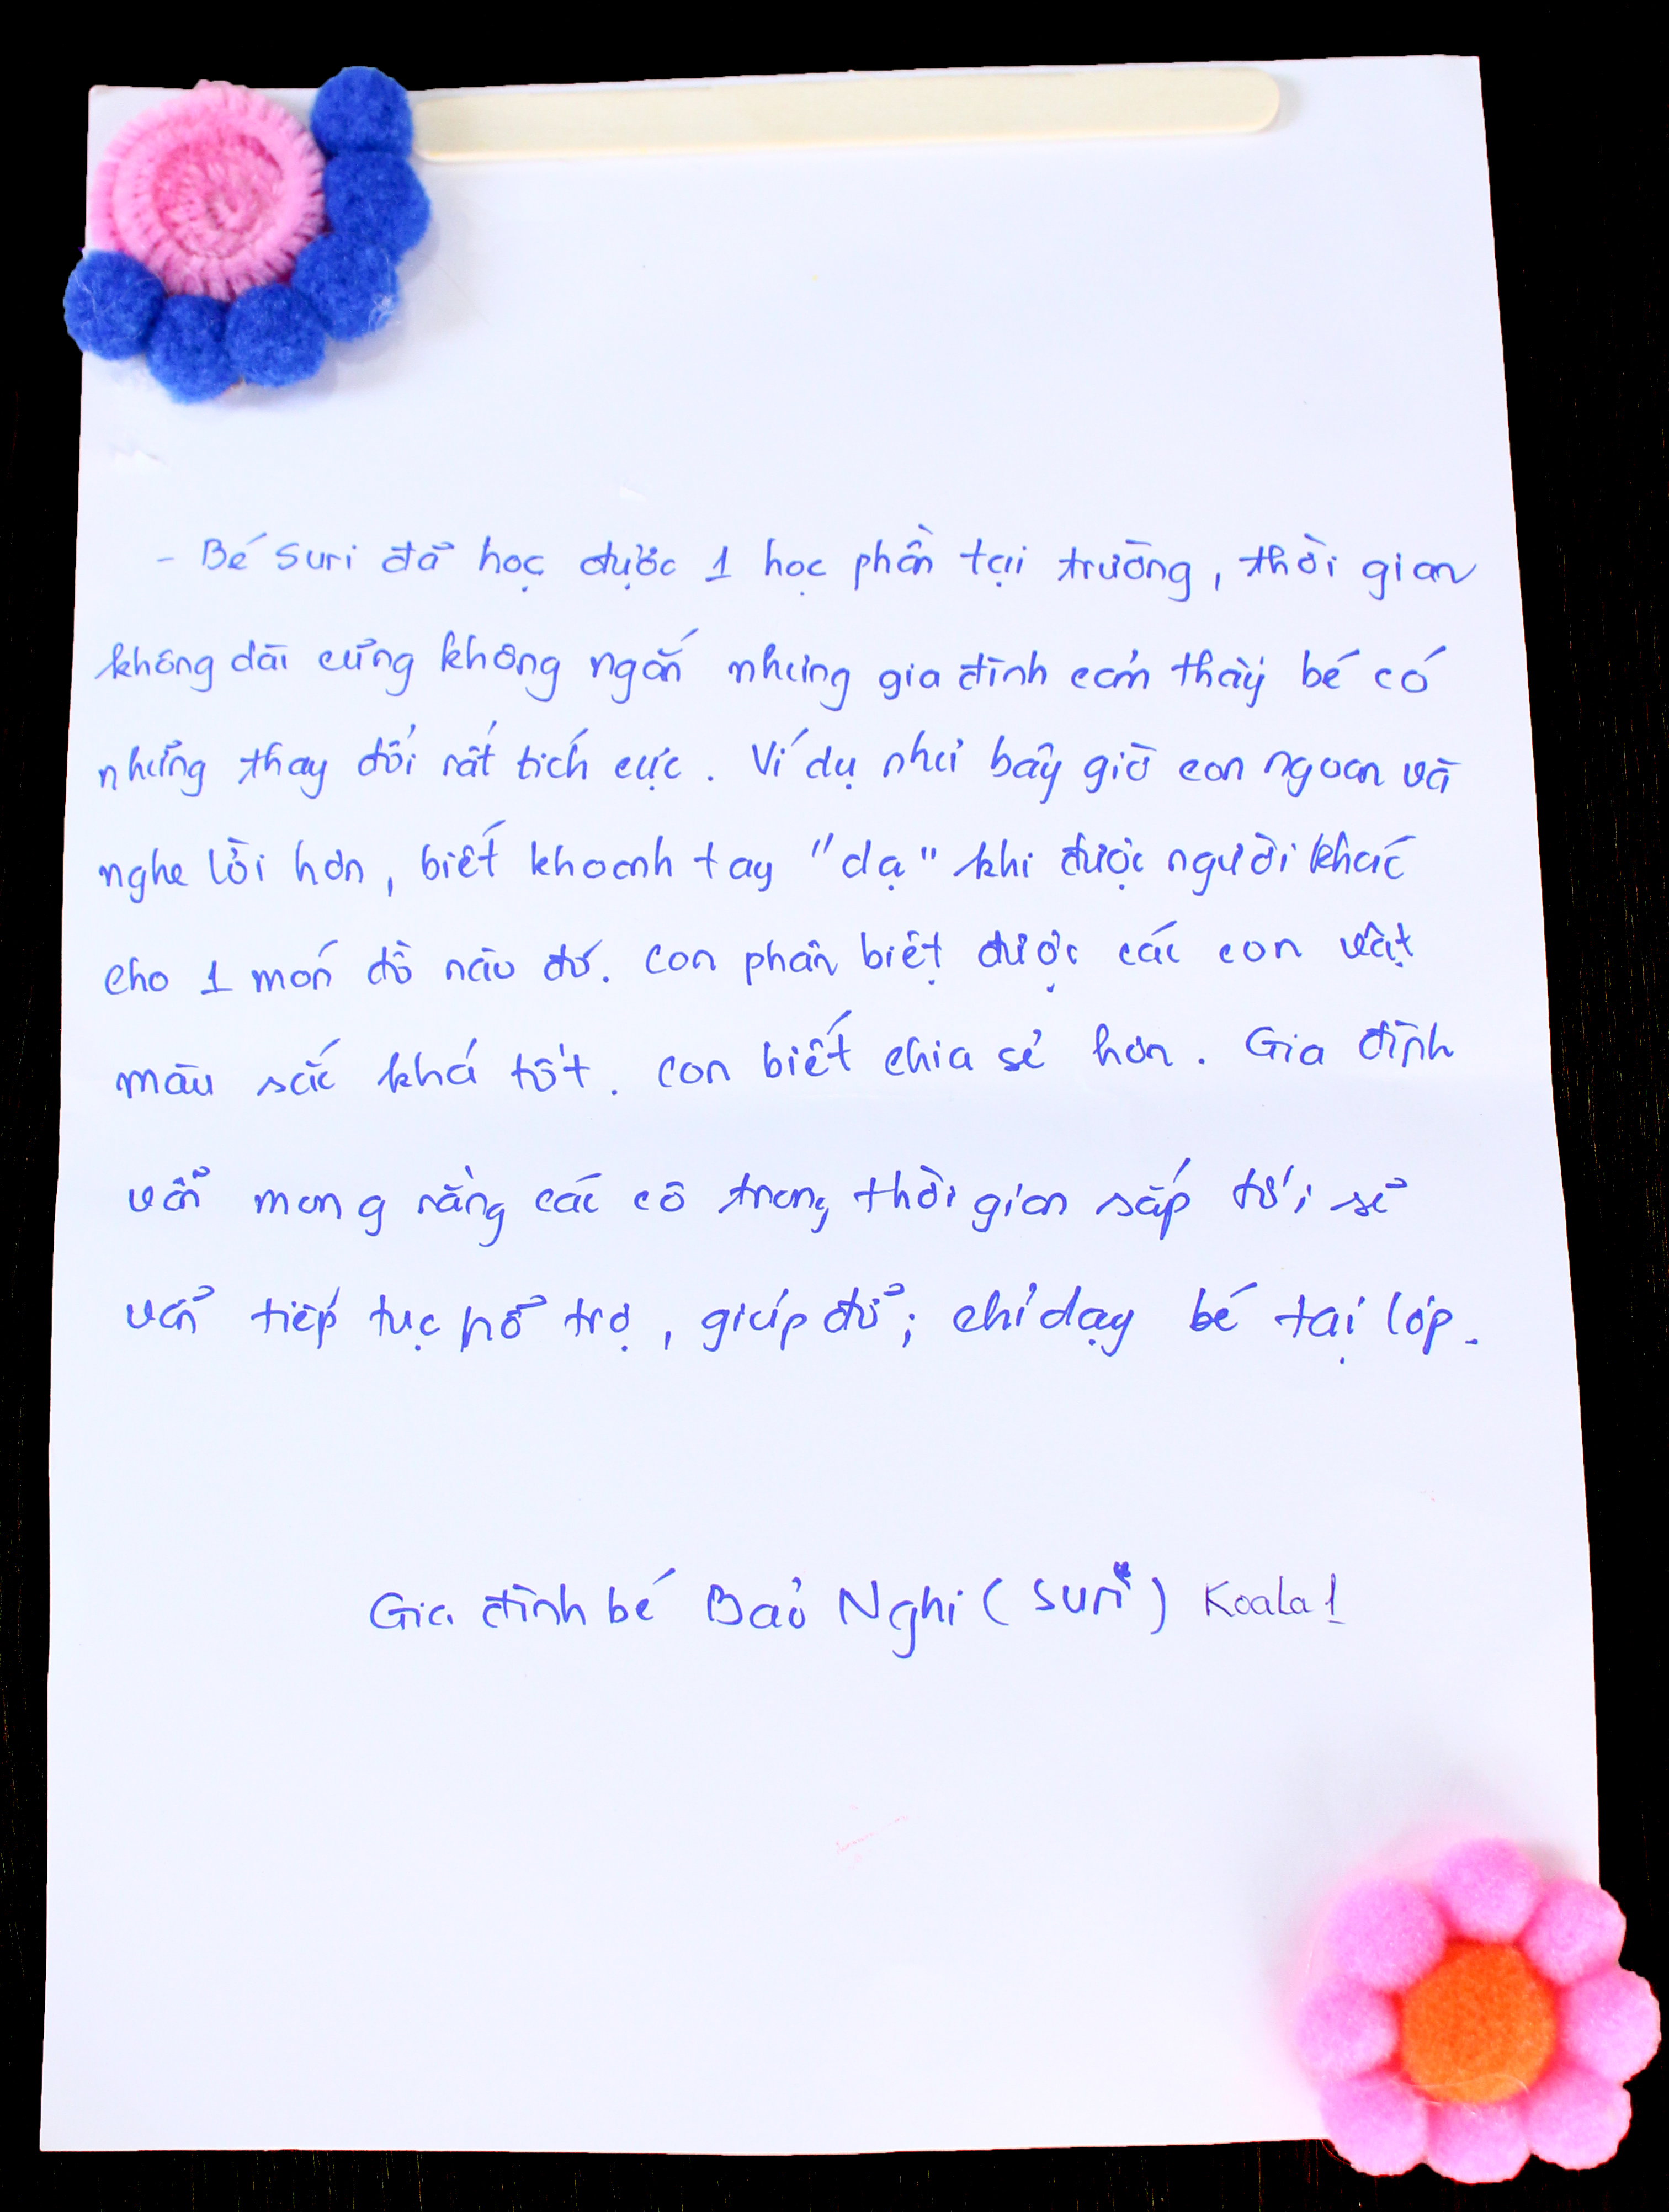 - Bé Suri đã học được 1 học phần tại trường, thời gian
không dài cũng không ngắn nhưng gia đình cảm thấy bé có
những thay đổi rất tích cực. Ví dụ như bây giờ con ngoan và
nghe lời hơn, biết khoanh tay "dạ" khi được người khác
cho 1 món đồ nào đó. Con phân biệt được các con vật
màu sắc khá tốt. Con biết chia sẻ hơn. Gia đình
vẫn mong rằng các cô trong thời gian sắp tới sẽ
vẫn tiếp tục hỗ trợ, giúp đỡ; chỉ dạy bé tại lớp.
Gia đình bé Bảo Nghi (Suri) Koala 1